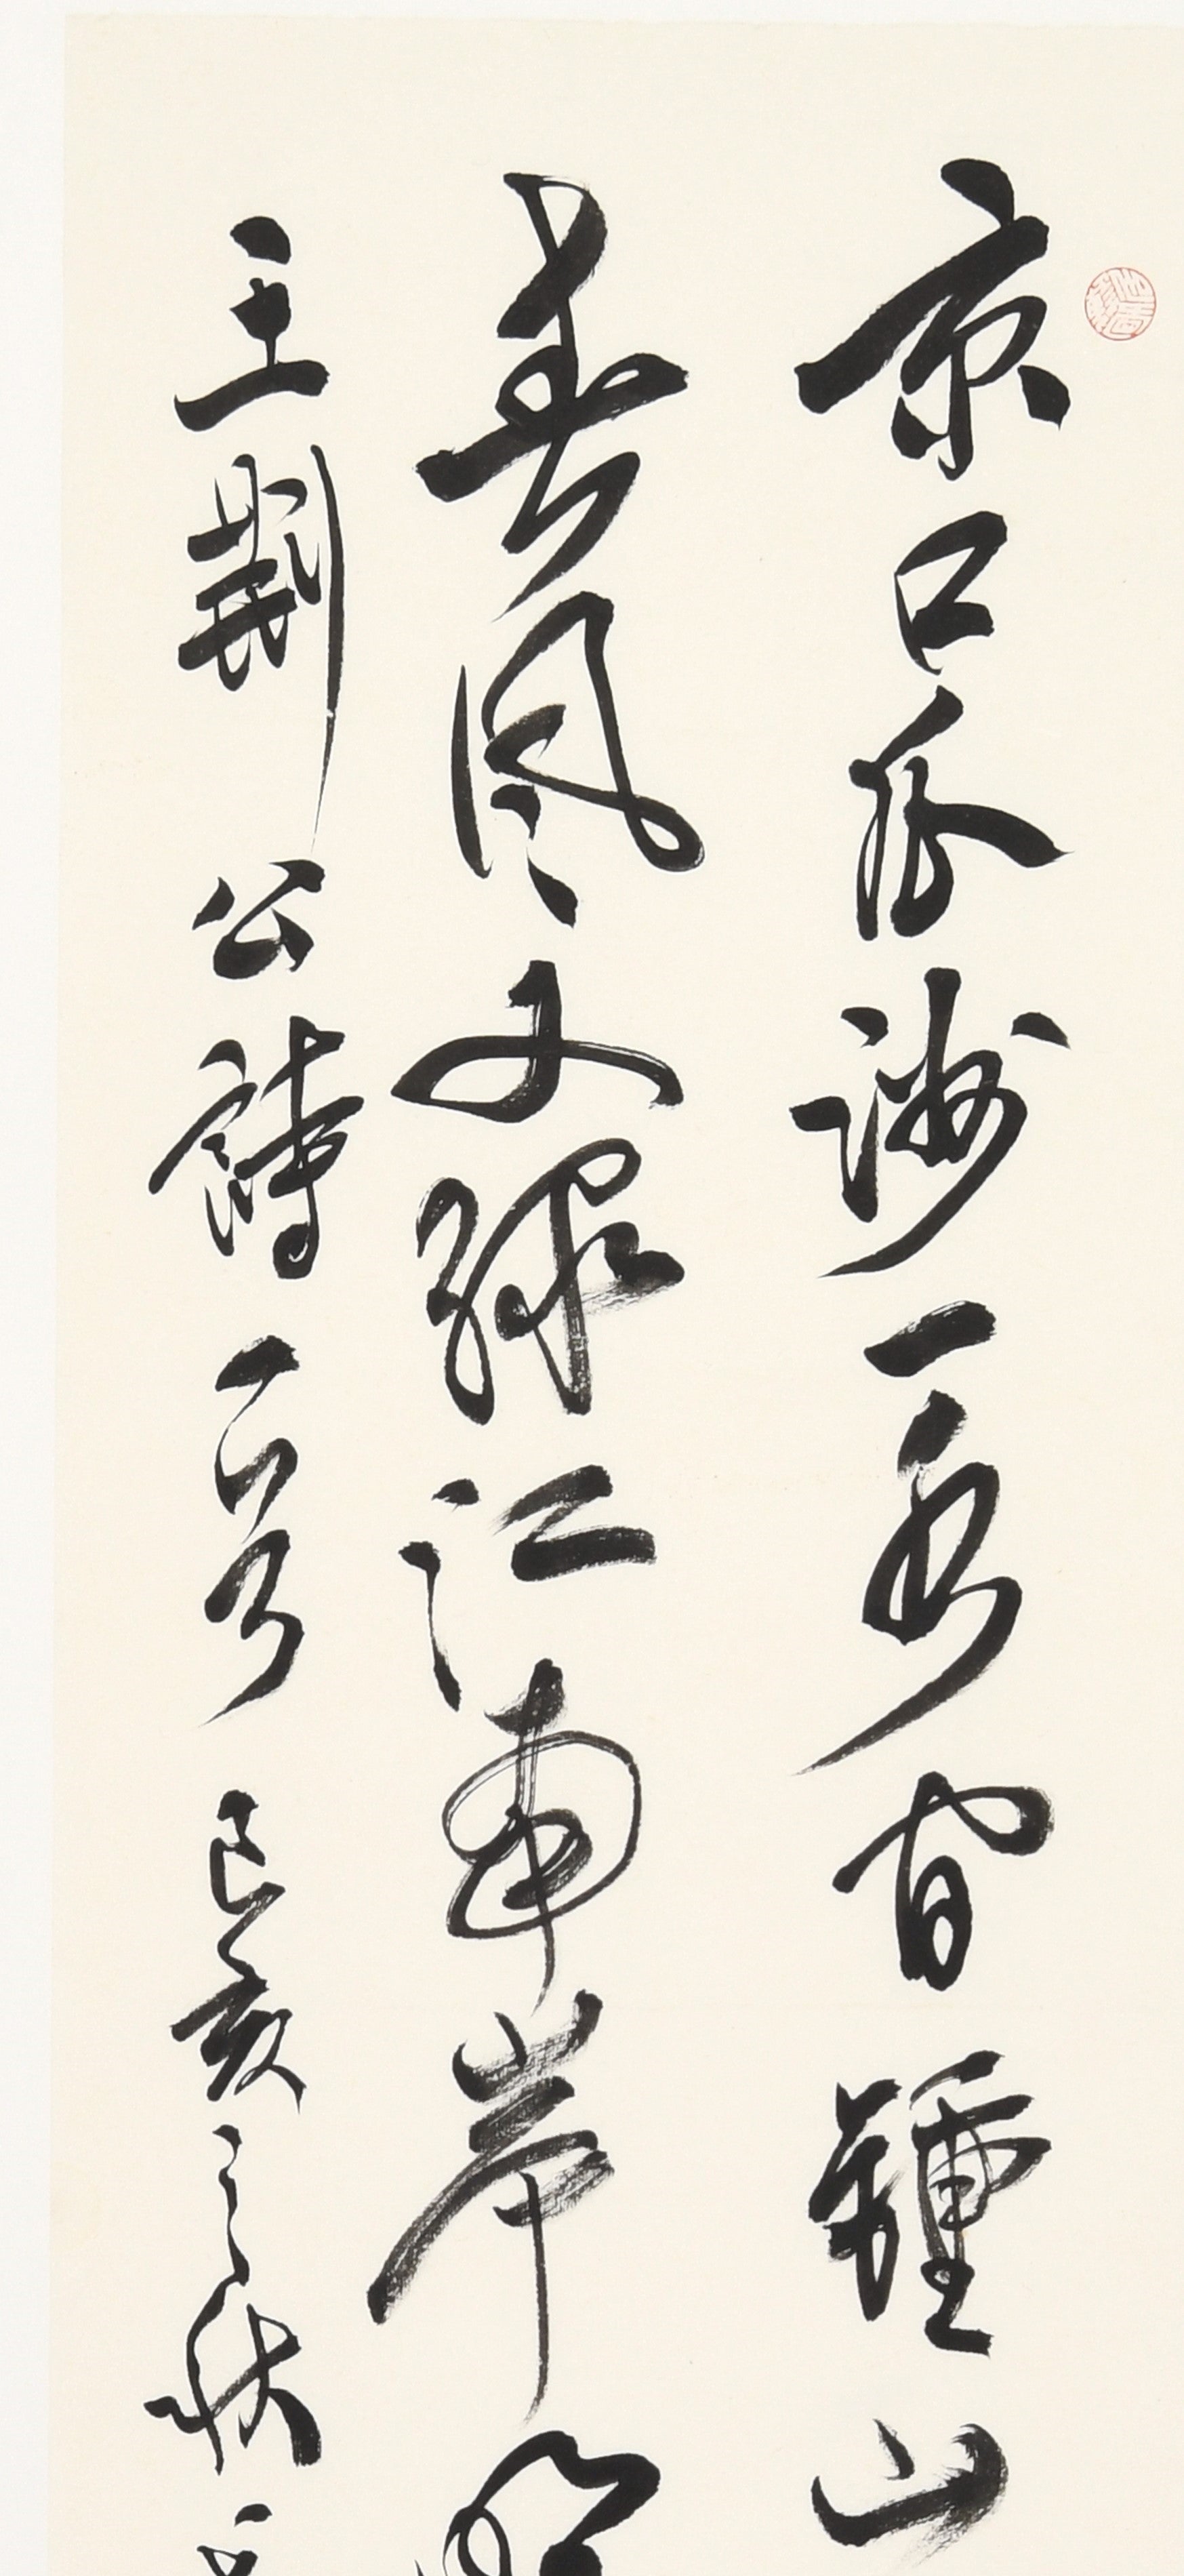 京口瓜洲一水間鍾山
春風又綠江南岸
王荊公詩一首己亥之秋